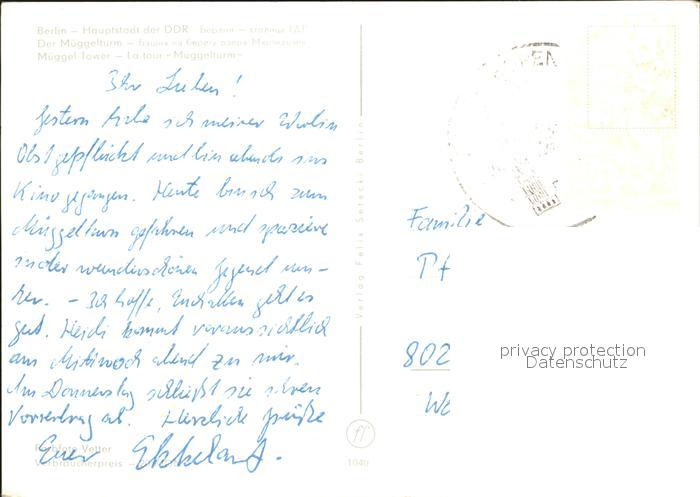 Berlin – Hauptstadt der DDR Берлин – столица ГДР
Der Müggelturm – башня на берегу озера
Müggel Tower – La tour «Müggelturm»
Ihr Lieben!
Gestern habe ich meiner Wirtin
Obst gepflückt und bin abends ins
Kino gegangen. Heute bin ich zum
Müggelturm gefahren und spaziere
in der wunderschönen Gegend um-
her. – Ich hoffe, Euch allen geht es
gut. Heidi kommt voraussichtlich
am Mittwoch abend zu mir.
Am Donnerstag schließt sie ihren
ab. Herzliche Grüße
Euer Ekkehard.
Farbfoto Vetter
Verbraucherpreis –
Verlag Felix Setecki Berlin
ff
1040
Familie
Pf
802
We
privacy protection
Datenschutz